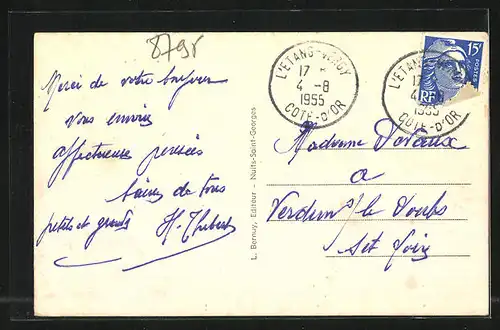 8795
Merci de votre bonjour
vous envoie
affectueuses pensées
baisers de tous
petits et grands H. Thibert
L. Bernuy, Editeur - Nuits-Saint-Georges
L'ETANG-VERGY
17
4 -8
1955
COTE-D'OR
L'ETANG-VERGY
4
1955
COTE-D'OR
15F
RF
Madame Devaux
a
Verdun s/ le Doubs
Set Loire